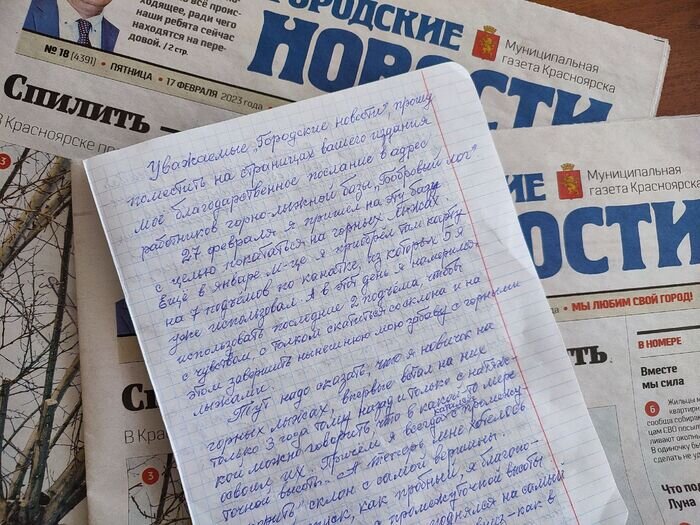 всё проис-
ходящее, ради чего
наши ребята сейчас
находятся на пере-
довой. / 2 стр.
№ 18 (4391) • ПЯТНИЦА • 17 ФЕВРАЛЯ 2023 года
ГОРОДСКИЕ
НОВОСТИ
Муниципальная
газета Красноярска
СПИЛИТЬ —
В Красноярске пр
3
Уважаемые „Городские новости", прошу
поместить на страницах вашего издания
моё благодарственное послание в адрес
работников горно-лыжной базы „Бобровый лог".
27 февраля я пришёл на эту базу
с целью покататься на горных лыжах
Ещё в январе м-це я приобрёл там карту
на 7 подъёмов по канатке, из которых 5 я
уже использовал. А в этот день я намеривался
использовать последние 2 подъёма, чтобы
с чувством, с толком скатиться со склона и на
этом завершить нынешнюю мою забаву с горными
лыжами.
Тут надо сказать, что я новичок на
горных лыжах, впервые встал на них
только 3 года тому назад и только с натяж-
кой можно говорить, что в какой то мере
освоил их. Причём я всегда катался с промежу-
точной высоты. А теперь мне хотелось
склон с самой вершины.
как пробный, я благопо-
промежуточной высоты
поднялся на самый
как в
СКИЕ
НОВОСТИ
Муниципальная
газета Красноярска
• МЫ ЛЮБИМ СВОЙ ГОРОД!
СП
В Крас
3
В НОМЕРЕ
Вместе
мы сила
6
Жильцы м
квартирн
сообща собира
цам СВО посыл
ливают окопны
В одиночку бы
сделать не уд
Что под
Луна